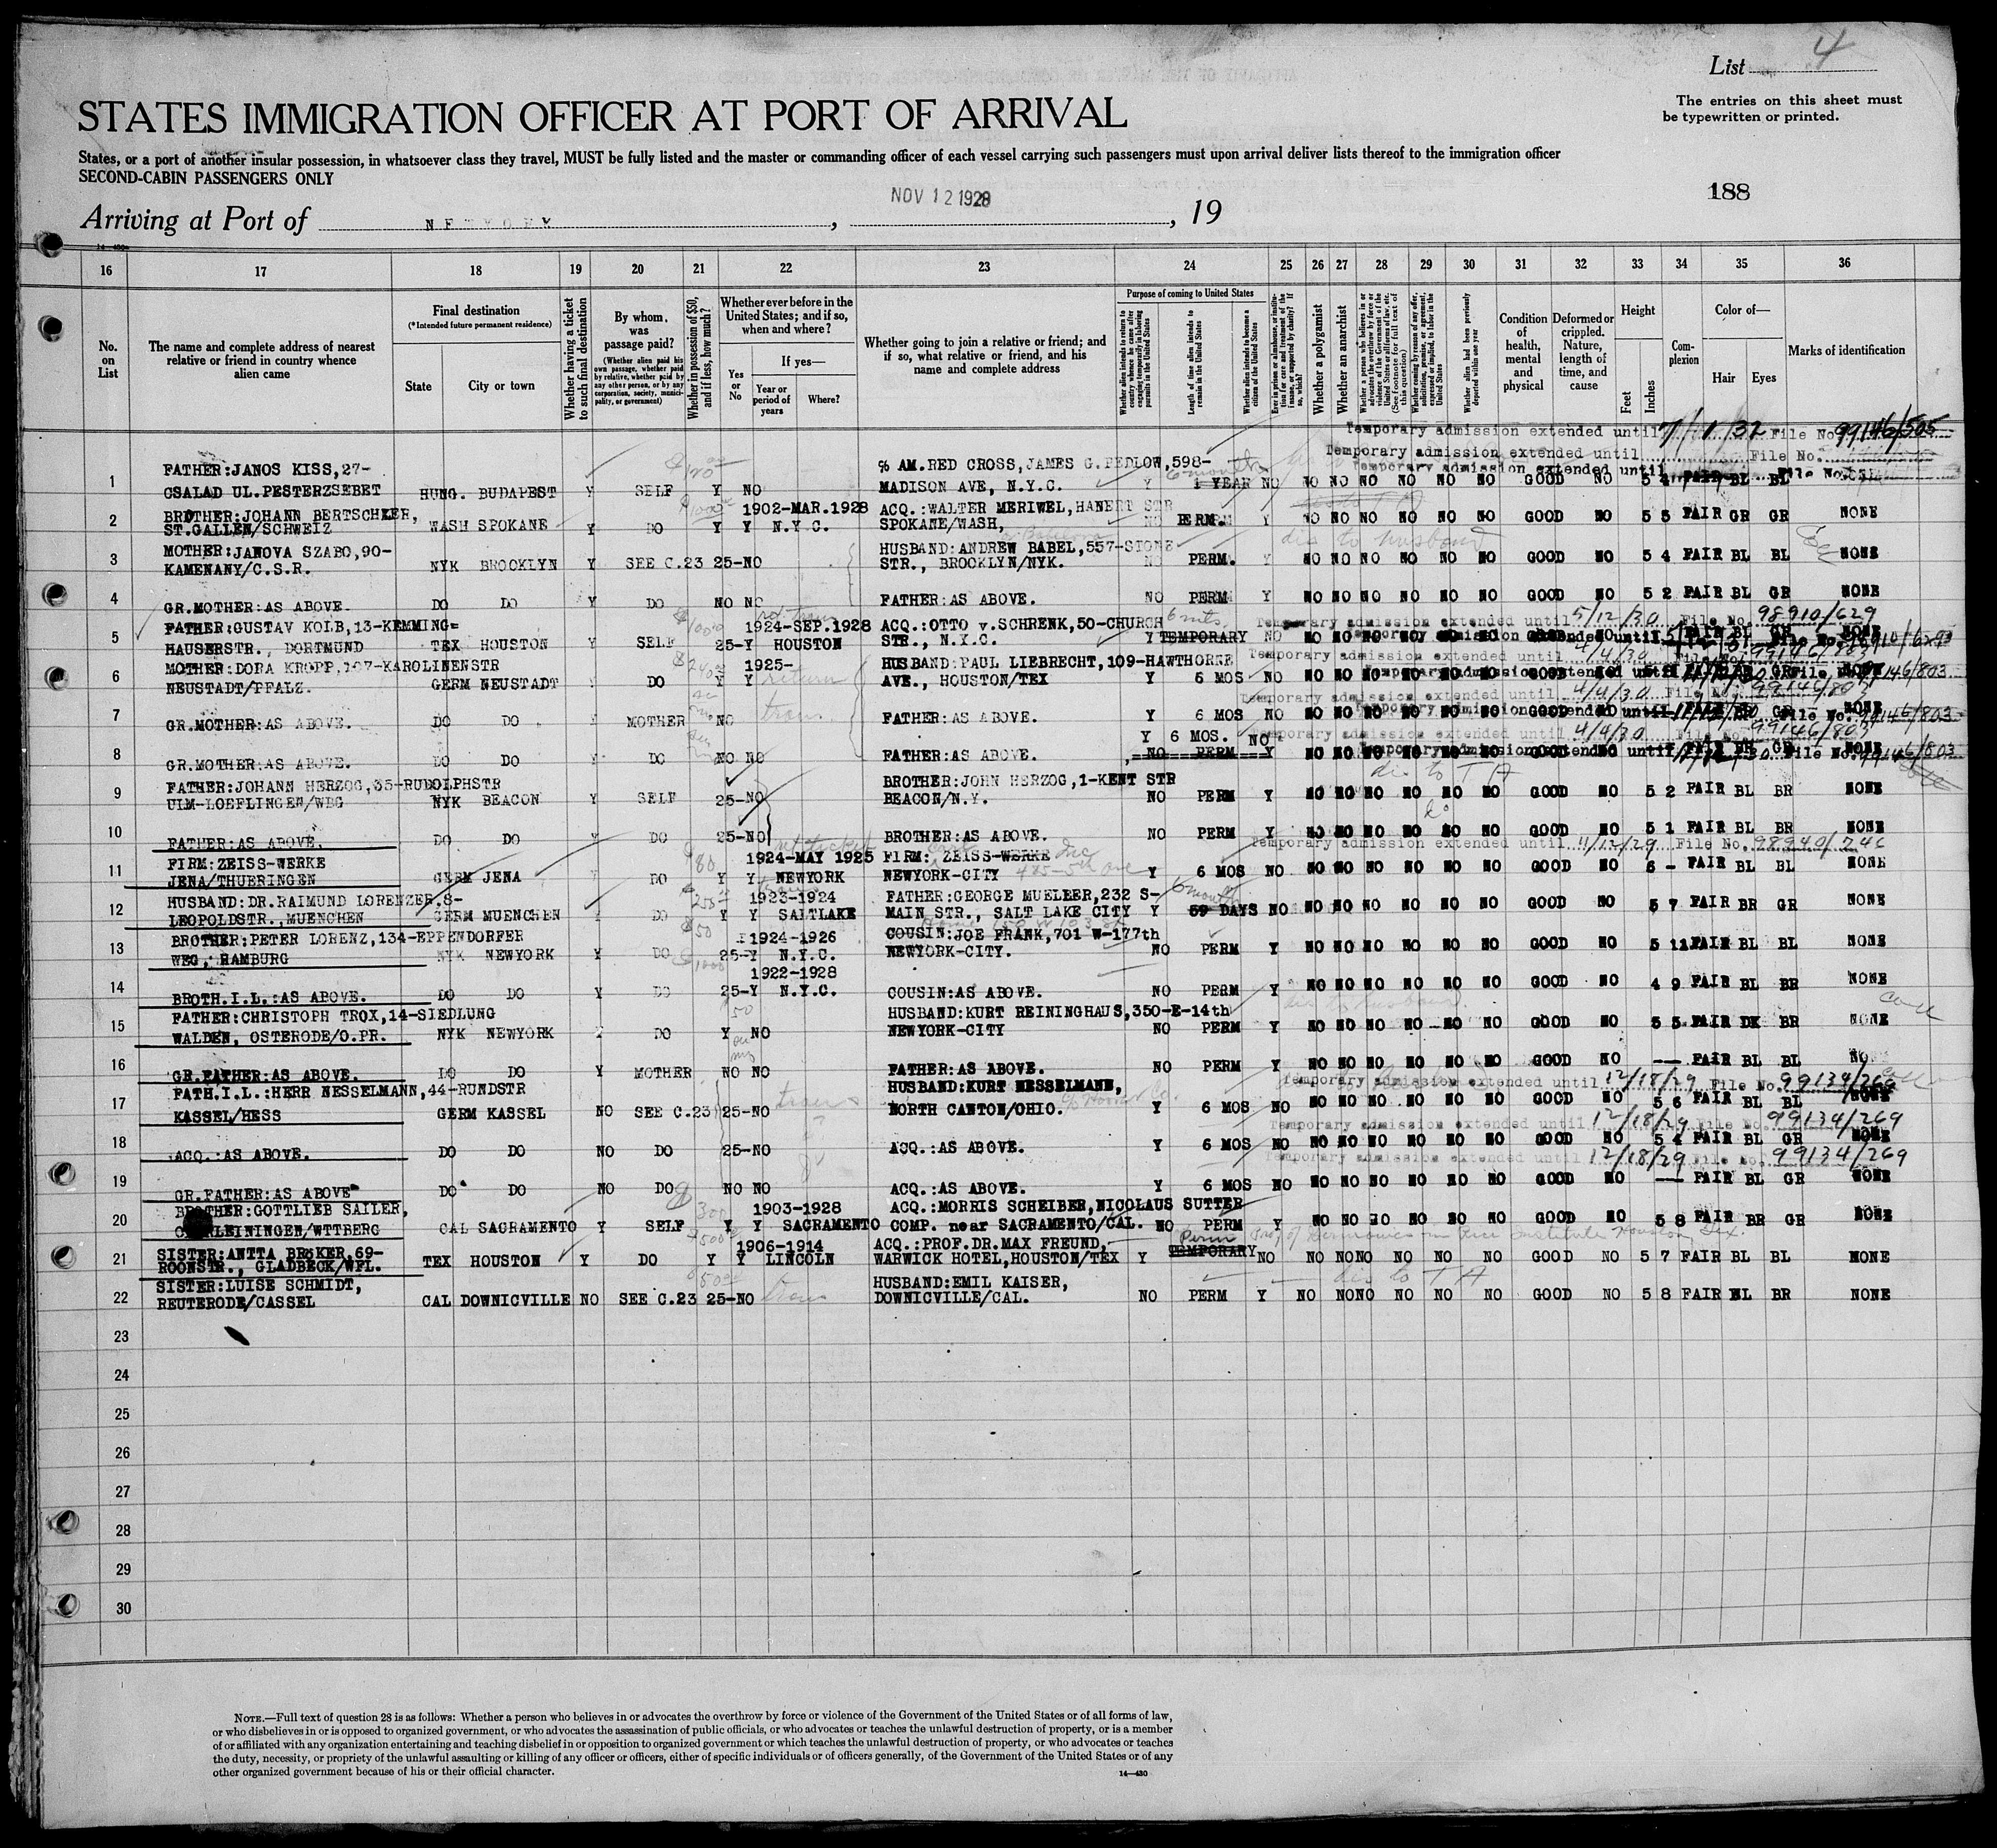 List 4
The entries on this sheet must
be typewritten or printed.
STATES IMMIGRATION OFFICER AT PORT OF ARRIVAL
States, or a port of another insular possession, in whatsoever class they travel, MUST be fully listed and the master or commanding officer of each vessel carrying such passengers must upon arrival deliver lists thereof to the immigration officer
SECOND-CABIN PASSENGERS ONLY
188
Arriving at Port of NEWYORK, NOV 12 1928, 19
14—430
16 17 18 19 20 21 22 23 24 25 26 27 28 29 30 31 32 33 34 35 36
No. on List
The name and complete address of nearest relative or friend in country whence alien came
Final destination
(*Intended future permanent residence)
State
City or town
Whether having a ticket to such final destination
By whom was passage paid?
(Whether alien paid his own passage, whether paid by relative, whether paid by any other person, or by any corporation, society, municipality, or government)
Whether in possession of $50, and if less, how much?
Whether ever before in the United States; and if so, when and where?
Yes or No
If yes—
Year or period of years
Where?
Whether going to join a relative or friend; and if so, what relative or friend, and his name and complete address
Purpose of coming to United States
Whether alien intends to return to country whence he came after engaging temporarily in laboring pursuits in the United States
Length of time alien intends to remain in the United States
Whether alien intends to become a citizen of the United States
Whether a polygamist
Whether an anarchist
Whether alien had been previously deported within one year
Condition of health, mental and physical
Deformed or crippled. Nature, length of time, and cause
Height
Feet
Inches
Complexion
Color of—
Hair
Eyes
Marks of identification
Temporary admission extended until 7/1/32 File No. 99146/505
Temporary admission extended until File No.
Temporary admission extended until File No.
1 FATHER:JANOS KISS,27- % AM.RED CROSS,JAMES G.PEDLOW,598-
CSALAD UL.PESTERZSEBET HUNG. BUDAPEST Y SELF Y NO MADISON AVE, N.Y.C. Y 1 YEAR NO NO NO NO NO NO NO GOOD NO 5 4 FAIR BL BL
2 BROTHER:JOHANN BERTSCHLER, 1902-MAR.1928 ACQ.:WALTER MERIWEL,HANERT STR
ST.GALLEN/SCHWEIZ WASH SPOKANE Y DO Y Y N.Y.C. SPOKANE/WASH, NO PERM. Y NO NO NO NO NO NO GOOD NO 5 5 FAIR GR GR NONE
3 MOTHER:JANOVA SZABO,90- HUSBAND:ANDREW BABEL,557-STONE dis to husband
KAMENANY/C.S.R. NYK BROOKLYN Y SEE C.23 25-NO STR., BROOKLYN/NYK. NO PERM. Y NO NO NO NO NO NO GOOD NO 5 4 FAIR BL BL NONE
4 GR.MOTHER:AS ABOVE. DO DO Y DO NO NO FATHER:AS ABOVE. NO PERM Y NO NO NO NO NO NO GOOD NO 5 2 FAIR BL GR NONE
Temporary admission extended until 5/12/30 File No. 98910/629
5 FATHER:GUSTAV KOLB,13-KEMMING= 1924-SEP.1928 ACQ.:OTTO v.SCHRENK,50-CHURCH 6 mts.
HAUSERSTR., DORTMUND TEX HOUSTON Y SELF 25-Y HOUSTON STR., N.Y.C. Y TEMPORARY NO
Temporary admission extended until 4/4/30 File No. 99146/803
6 MOTHER:DORA KROPP,107-KAROLINENSTR 1925- HUSBAND:PAUL LIEBRECHT,109-HAWTHORNE
NEUSTADT/PFALZ. GERM NEUSTADT Y DO Y Y return AVE., HOUSTON/TEX Y 6 MOS NO
Temporary admission extended until 4/4/30 File No. 99146/803
7 GR.MOTHER:AS ABOVE. DO DO Y MOTHER NO FATHER:AS ABOVE. Y 6 MOS NO
Temporary admission extended until 4/4/30 File No. 99146/803
Y 6 MOS. NO
8 GR.MOTHER:AS ABOVE. DO DO Y DO NO NO FATHER:AS ABOVE. NO PERM Y
9 FATHER:JOHANN HERZOG,35-RUDOLPHSTR BROTHER:JOHN HERZOG,1-KENT STR
ULM-LOEFLINGEN/WBG NYK BEACON Y SELF 25-NO BEACON/N.Y. NO PERM Y NO NO NO NO NO NO GOOD NO 5 2 FAIR BL BR NONE
10 FATHER:AS ABOVE. DO DO Y DO 25-NO BROTHER:AS ABOVE. NO PERM Y NO NO NO NO NO NO GOOD NO 5 1 FAIR BL BR NONE
Temporary admission extended until 11/12/29 File No. 98940/246
11 FIRM:ZEISS-WERKE 1924-MAY 1925 FIRM: ZEISS-WERKE Inc
JENA/THUERINGEN GERM JENA Y DO Y Y NEWYORK NEWYORK-CITY 485-5th ave Y 6 MOS NO NO NO NO NO NO NO GOOD NO 6 - FAIR BL BL NONE
12 HUSBAND:DR.RAIMUND LORENZER.8- 1923-1924 FATHER:GEORGE MUELLER,232 S-
LEOPOLDSTR.,MUENCHEN GERM MUENCHEN Y DO Y Y SALTLAKE MAIN STR., SALT LAKE CITY Y 59 DAYS NO NO NO NO NO NO NO GOOD NO 5 7 FAIR BR GR NONE
13 BROTHER:PETER LORENZ,134-EPPENDORFER 1924-1926 COUSIN:JOE FRANK,701 W-177th
WEG, HAMBURG NYK NEWYORK Y DO 25-Y N.Y.C. NEWYORK-CITY. NO PERM Y NO NO NO NO NO NO GOOD NO 5 11 FAIR BL BL NONE
14 1922-1928
BROTH.I.L.:AS ABOVE. DO DO Y DO 25-Y N.Y.C. COUSIN:AS ABOVE. NO PERM Y NO NO NO NO NO NO GOOD NO 4 9 FAIR BL BR NONE
15 FATHER:CHRISTOPH TROX,14-SIEDLUNG HUSBAND:KURT REININGHAUS,350-E-14th dis to husband.
WALDEN, OSTERODE/O.PR. NYK NEWYORK Y DO Y NO NEWYORK-CITY NO PERM Y NO NO NO NO NO NO GOOD NO 5 5 FAIR DK BR NONE
16 GR.FATHER:AS ABOVE. DO DO Y MOTHER NO NO FATHER:AS ABOVE. NO PERM Y NO NO NO NO NO NO GOOD NO — FAIR BL BL NO
Temporary admission extended until 12/18/29 File No. 99134/269
17 FATH.I.L.:HERR NESSELMANN,44-RUNDSTR HUSBAND:KURT NESSELMANN,
KASSEL/HESS GERM KASSEL NO SEE C.23 25-NO NORTH CANTON/OHIO. c/o Hoover Co. Y 6 MOS NO NO NO NO NO NO NO GOOD NO 5 6 FAIR BL BL NONE
Temporary admission extended until 12/18/29 File No. 99134/269
18 ACQ.:AS ABOVE. DO DO NO DO 25-NO ACQ.:AS ABOVE. Y 6 MOS NO NO NO NO NO NO NO GOOD NO 5 4 FAIR BL GR NONE
Temporary admission extended until 12/18/29 File No. 99134/269
19 GR.FATHER:AS ABOVE DO DO NO DO NO NO ACQ.:AS ABOVE. Y 6 MOS NO NO NO NO NO NO NO GOOD NO — FAIR BL GR NONE
20 BROTHER:GOTTLIEB SAILER, 1903-1928 ACQ.:MORRIS SCHEIBER,NICOLAUS SUTTER
LEININGEN/WTTBERG CAL SACRAMENTO Y SELF Y Y SACRAMENTO COMP. near SACRAMENTO/CAL. NO PERM Y NO NO NO NO NO NO GOOD NO 5 8 FAIR BR GR NONE
21 SISTER:ANTTA BROKER,69- 1906-1914 ACQ.:PROF.DR.MAX FREUND, Perm
ROONSTR., GLADBECK/WFL. TEX HOUSTON Y DO Y Y LINCOLN WARWICK HOTEL,HOUSTON/TEX Y TEMPORARY NO NO NO NO NO NO NO GOOD NO 5 7 FAIR BL BL NONE
22 SISTER:LUISE SCHMIDT, HUSBAND:EMIL KAISER, dis to T A
REUTERODE/CASSEL CAL DOWNICVILLE NO SEE C.23 25-NO DOWNICVILLE/CAL. NO PERM Y NO NO NO NO NO NO GOOD NO 5 8 FAIR BL BR NONE
23
24
25
26
27
28
29
30
NOTE.—Full text of question 28 is as follows: Whether a person who believes in or advocates the overthrow by force or violence of the Government of the United States or of all forms of law,
or who disbelieves in or is opposed to organized government, or who advocates the assassination of public officials, or who advocates or teaches the unlawful destruction of property, or is a member
of or affiliated with any organization entertaining and teaching disbelief in or opposition to organized government or which teaches the unlawful destruction of property, or who advocates or teaches
the duty, necessity, or propriety of the unlawful assaulting or killing of any officer or officers, either of specific individuals or of officers generally, of the Government of the United States or of any
other organized government because of his or their official character.
14—430